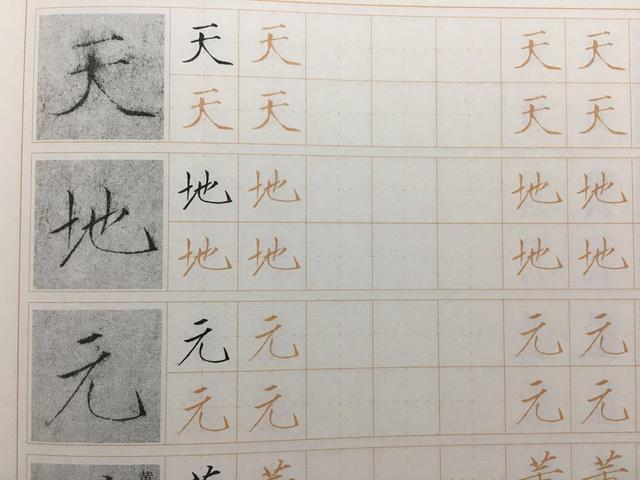 天 天 天 天 天
天 天 天 天
地 地 地 地 地
地 地 地 地
元 元 元 元 元
元 元 元 元
黄 黄 黄 黄 黄